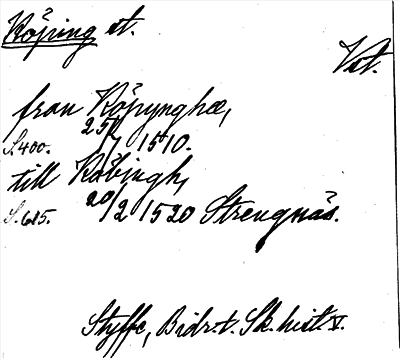 Köping st.
Vst.
från Köpynghæ,
S. 400. 25/7 1510.
till Köbingh,
S. 615. 20/2 1520 Strengnäs.
Styffe, Bidr. t. Sk. hist. V.